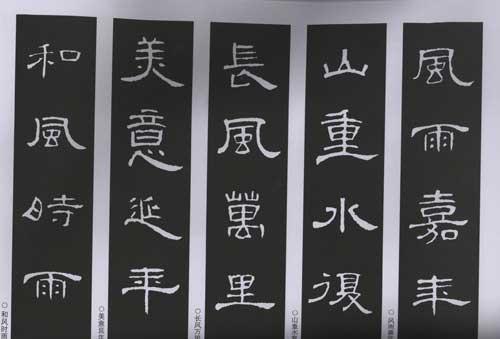 風雨嘉年
○风雨嘉
山重水復
○山重水
長風萬里
○长风万里
美意延年
○美意延年
和風時雨
○和风时雨